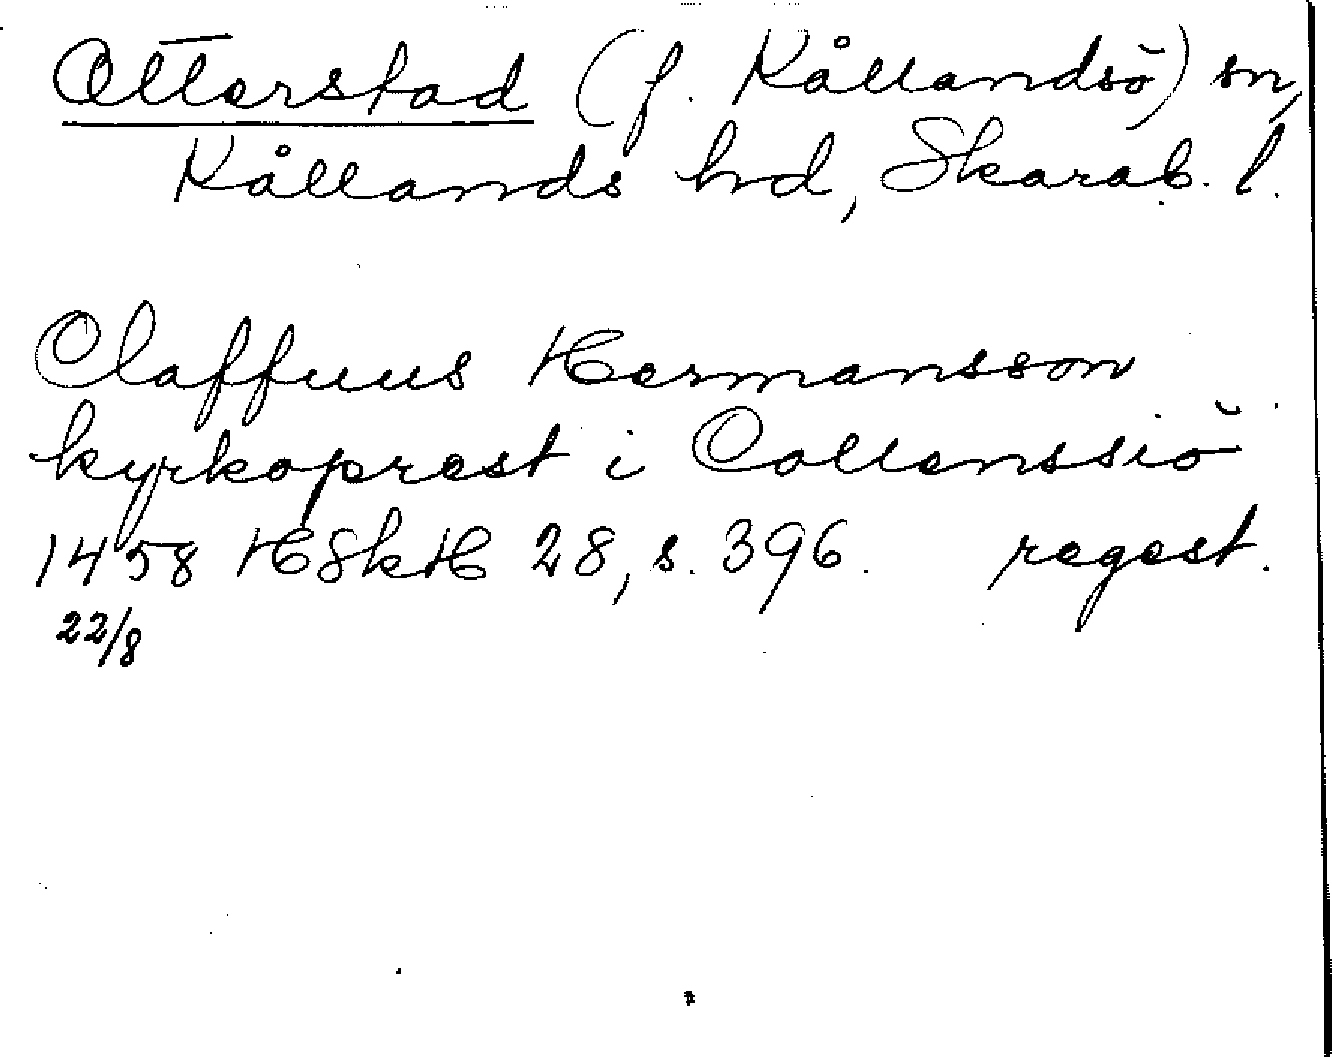 Otterstad (f. Kållandsö) sn,
Kållands hd, Skarab. l.
Olaffuus Hermansson
kyrkoprest i Collenssiö
1458 HSkH 28, s. 396. regest.
22/8